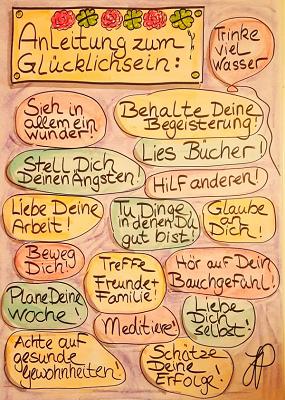 Anleitung zum
Glücklichsein:
Trinke
viel
Wasser
Sieh in
allem ein
Wunder!
Behalte Deine
Begeisterung!
Stell Dich
Deinen Ängsten!
Lies Bücher!
Hilf anderen!
Liebe Deine
Arbeit!
Tu Dinge,
in denen Du
gut bist!
Glaube
an Dich!
Beweg
Dich!
Treffe
Freunde+
Familie!
Hör auf Dein
Bauchgefühl!
Plane Deine
Woche!
Meditiere!
Liebe
Dich
selbst!
Achte auf
gesunde
Gewohnheiten!
Schätze
Deine
Erfolge!